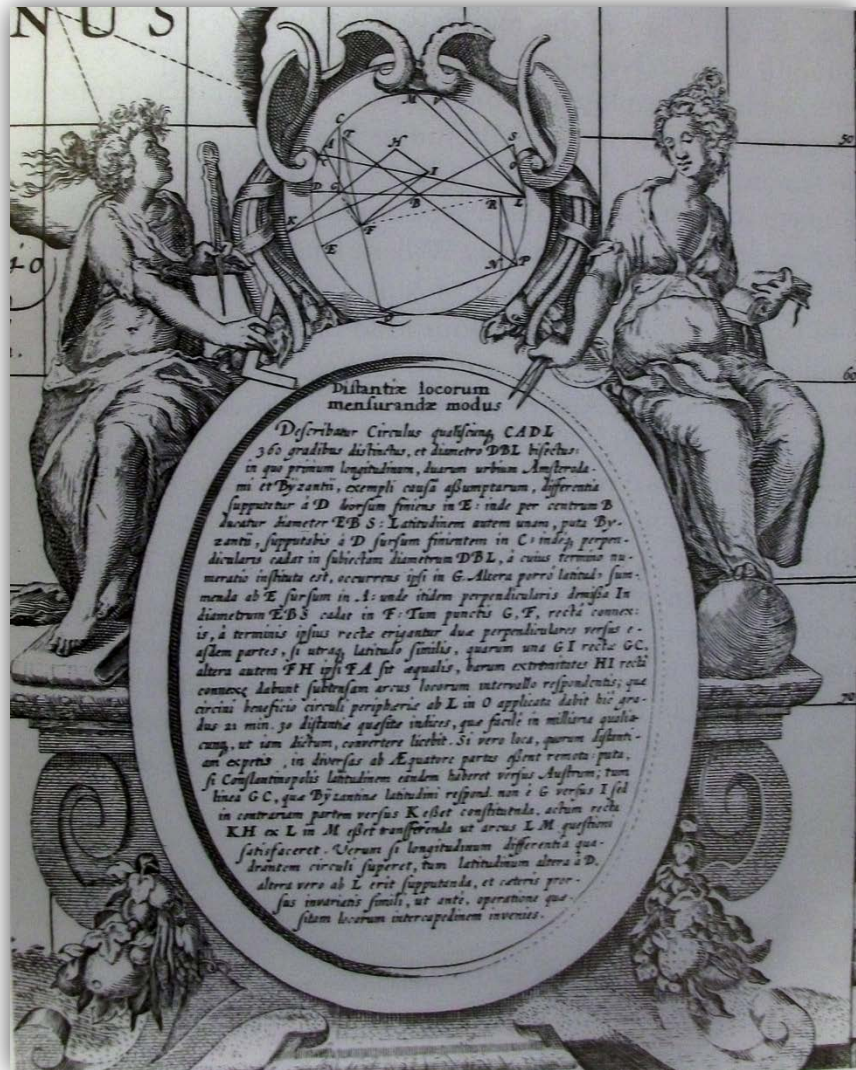 NUS
50
40
60
70
C T H M V S A I O D G B R L K F E N P Q
Distantiæ locorum
mensurandæ modus
Describatur Circulus qualiscunq, CADL
360 gradibus distinctus, et diametro DBL bisectus:
in quo primum longitudinum, duarum urbium Amsteroda-
mi et Bÿzantii, exempli causâ aßumptarum, differentia
supputetur à D deorsum finiens in E: inde per centrum B
ducatur diameter EBS: Latitudinem autem unam, puta By-
zantii, supputabis à D sursum finientem in C: indeq, perpen-
dicularis cadat in subiectam diametrum DBL, à cuius termino nu-
meratio instituta est, occurrens ipsi in G. Altera porrò latitud: sum-
menda ab E sursum in A: unde itidem perpendicularis demißa In
diametrum EBS cadat in F: Tum punctis G, F, rectâ connex:
is, à terminis ipsius rectæ erigantur duæ perpendiculares versus e-
asdem partes, si utraq, latitudo similis, quarum una GI rectæ GC,
altera autem FH ipsi FA sit æqualis, harum extremitates HI rectâ
connexæ dabunt subtensam arcus locorum intervallo respondentis; quæ
circini beneficio circuli peripheriæ ab L in O applicata dabit hîc gra-
dus 21 min. 30 distantiæ quæsitæ indices, quæ facile in milliaria qualia-
cunq, ut iam dictum, convertere licebit. Si vero loca, quorum distanti-
am expetis, in diversas ab Æquatore partes eßent remota: puta,
si Constantinopolis latitudinem eandem haberet versus Austrum; tum
linea GC, quæ Bÿzantinæ latitudini respond. non è G versus I sed
in contrariam partem versus K eßet constituenda, actum recta
KH ex L in M eßet transferenda ut arcus LM quæstioni
satisfaceret. Verum si longitudinum differentia qua-
drantem circuli superet, tum latitudinum altera à D,
altera vero ab L erit supputanda, et cæteris pror-
sus invariatis simili, ut ante, operatione quæ-
sitam locorum intercapedinem invenies.